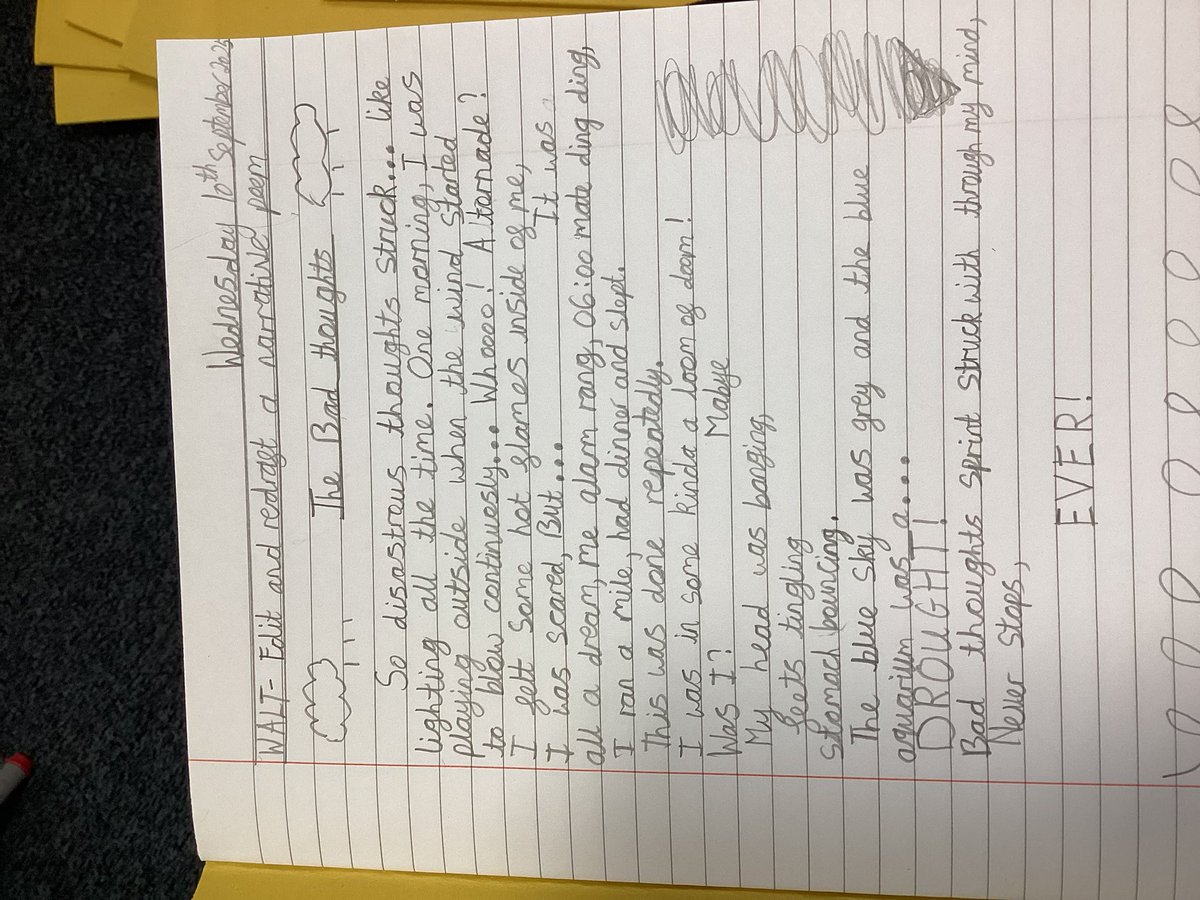 Wednesday 10th September 2025
WALT- Edit and redraft a narrative poem
The Bad thoughts
So disastrous thoughts struck... like
lighting all the time. One morning, I was
playing outside when the wind started
to blow continuesly... Whoooo! A tornade?
I felt some hot flames inside of me,
I was scared, But... It was
all a dream, me alarm rang, 06:00 mate ding ding,
I ran a mile, had dinner and slept.
this was done repeatedly.
I was in some kinda a loom of doom!
Was I? Mabye
My head was banging,
feets tingling
stomach bouncing.
The blue sky was grey and the blue
aquarium was a....
DROUGHT!
Bad thoughts sprint struck with through my mind,
Never stops,
EVER!